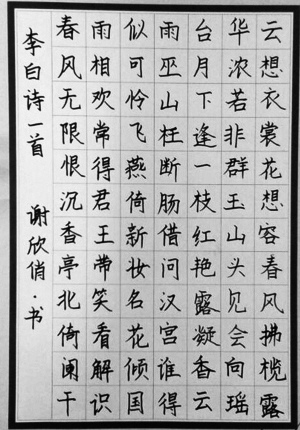 云想衣裳花想容春风拂榄露
华浓若非群玉山头见会向瑶
台月下逢一枝红艳露凝香云
雨巫山枉断肠借问汉宫谁得
似可怜飞燕倚新妆名花倾国
雨相欢常得君王带笑看解识
春风无限恨沉香亭北倚阑干
李白诗一首 谢欣俏·书